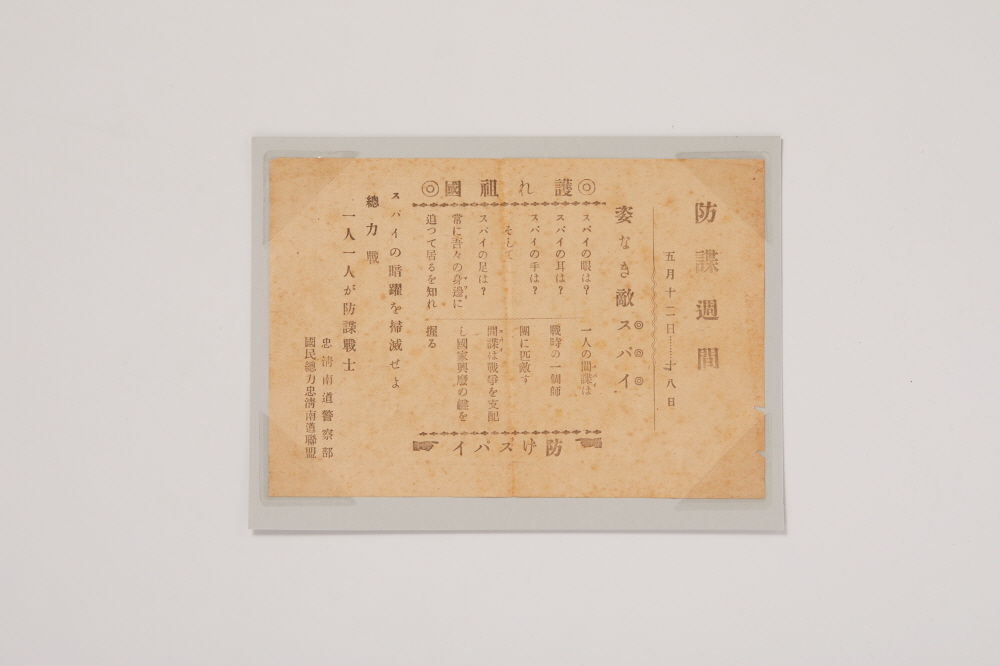 防諜週間
五月十二日……十八日
姿なき敵スパイ
◎護れ祖國◎
スパイの眼は?
スパイの耳は?
スパイの手は?
そして
スパイの足は?
常に吾々の身邊に
迫つて居るを知れ
一人の間諜は
戰時の一個師
團に匹敵す
間諜は戰爭を支配
し國家興廢の鍵を
握る
防げスパイ
スパイの暗躍を掃滅せよ
總力戰
一人一人が防諜戰士
忠淸南道警察部
國民總力忠淸南道聯盟